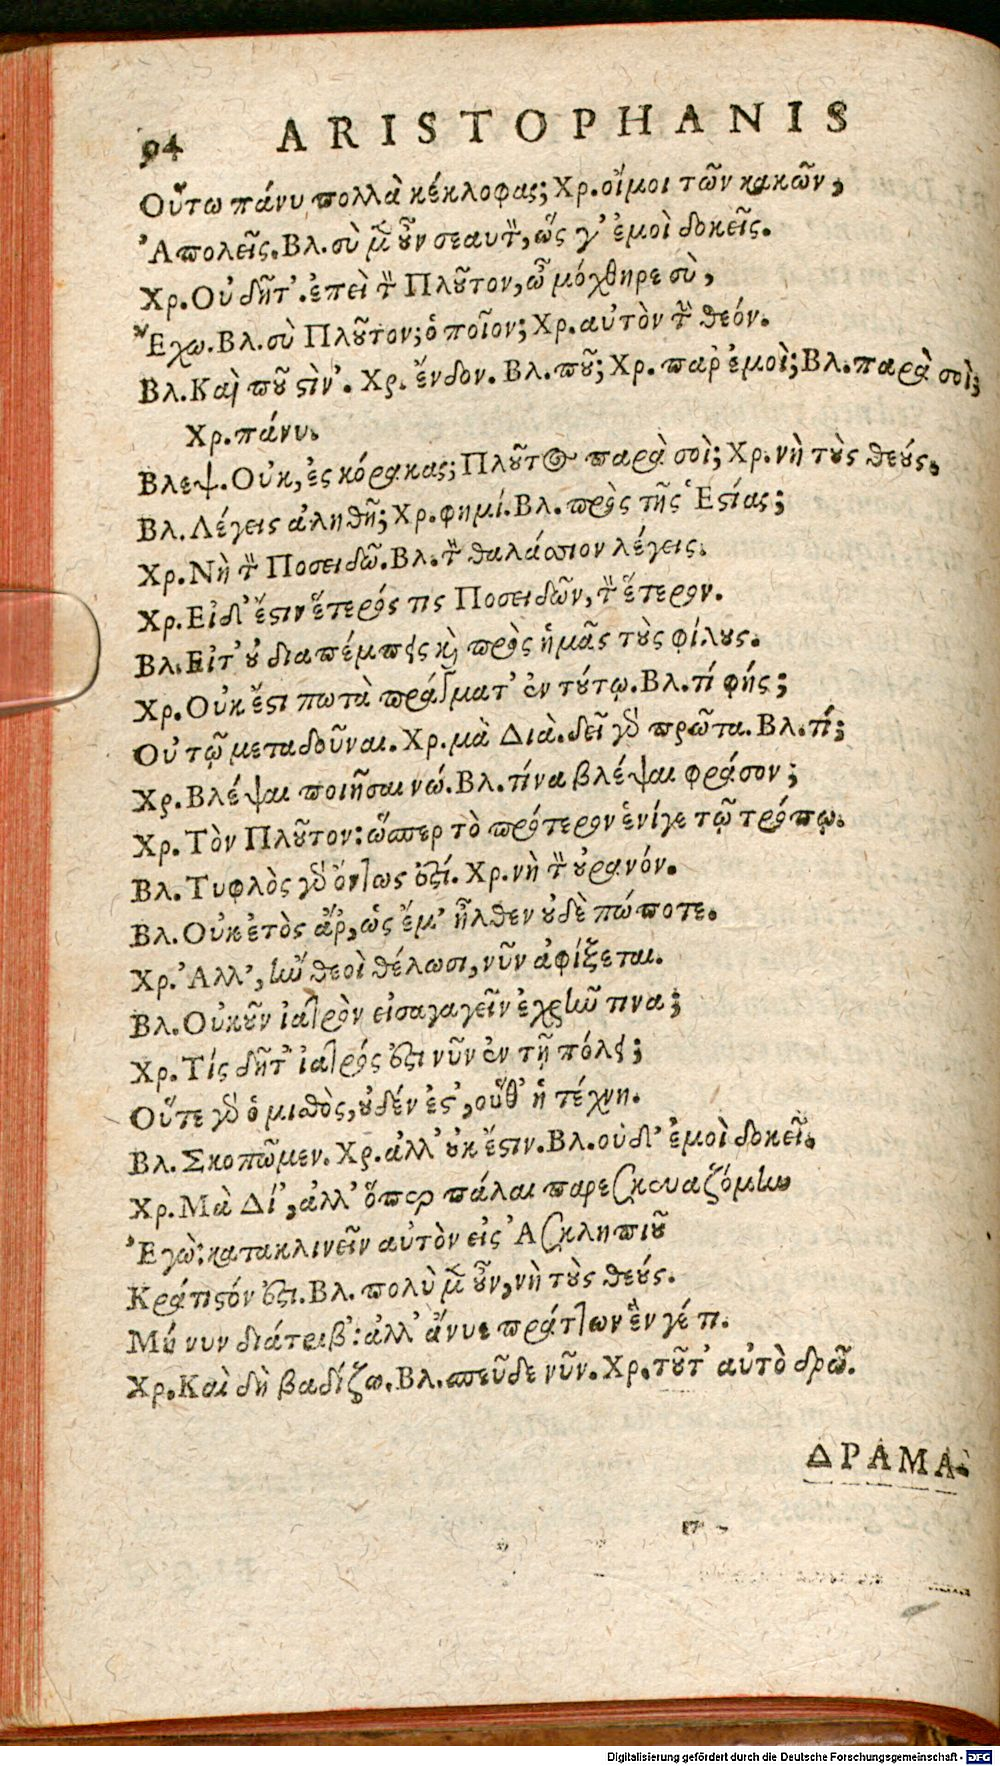 94 ARISTOPHANIS
Οὕτω πάνυ πολλὰ κέκλοφας; Χρ. οἴμοι τῶν κακῶν,
Ἀπολεῖς. Βλ. σὺ μὲν οὖν σεαυτὸν, ὥς γ' ἐμοὶ δοκεῖς.
Χρ. Οὐ δῆτ'. ἐπεὶ τὸν Πλοῦτον, ὦ μόχθηρε σὺ,
Ἔχω. Βλ. σὺ Πλοῦτον; ὁ ποῖον; Χρ. αὐτὸν τὸν θεόν.
Βλ. Καὶ ποῦ 'ςὶν'. Χρ. ἔνδον. Βλ. ποῦ; Χρ. παρ' ἐμοὶ; Βλ. παρὰ σοὶ;
Χρ. πάνυ.
Βλεψ. Οὐκ, ἐς κόρακας; Πλοῦτος παρὰ σοὶ; Χρ. νὴ τοὺς θεούς.
Βλ. Λέγεις ἀληθῆ; Χρ. φημί. Βλ. πρὸς τῆς Ἑςίας;
Χρ. Νὴ τὸν Ποσειδῶ. Βλ. τὸν θαλάσσιον λέγεις.
Χρ. Εἰ δ' ἔςιν ἕτερός τις Ποσειδῶν, τὸν ἕτερον.
Βλ. Εἶτ' οὐ διαπέμπεις καὶ πρὸς ἡμᾶς τοὺς φίλους.
Χρ. Οὐκ ἔςι πω τὰ πράγματ' ἐν τούτῳ. Βλ. τί φής;
Οὐ τῷ μεταδοῦναι. Χρ. μὰ Διὰ. δεῖ γὰρ πρῶτα. Βλ. τί;
Χρ. Βλέψαι ποιῆσαι νώ. Βλ. τίνα βλέψαι φράσον;
Χρ. Τὸν Πλοῦτον: ὥσπερ τὸ πρότερον ἑνί γε τῷ τρόπῳ.
Βλ. Τυφλὸς γὰρ ὄντως ἐςί. Χρ. νὴ τὸν οὐρανόν.
Βλ. Οὐκ ἐτὸς ἄρ, ὡς ἔμ' ἦλθεν οὐδὲ πώποτε.
Χρ. Ἀλλ', ἢν θεοὶ θέλωσι, νῦν ἀφίξεται.
Βλ. Οὐκοῦν ἰατρὸν εἰσαγαγεῖν ἐχρῆν τινα;
Χρ. Τίς δῆτ' ἰατρός ἐςι νῦν ἐν τῇ πόλει;
Οὔτε γὰρ ὁ μισθὸς, οὐδέν ἐς', οὔθ' ἡ τέχνη.
Βλ. Σκοπῶμεν. Χρ. ἀλλ' οὐκ ἔςιν. Βλ. οὐδ' ἐμοὶ δοκεῖ.
Χρ. Μὰ Δί', ἀλλ' ὅπερ πάλαι παρεσκευαζόμην
Ἐγὼ: κατακλινεῖν αὐτὸν εἰς Ἀσκληπιοῦ
Κράτιςόν ἐςι. Βλ. πολὺ μὲν οὖν, νὴ τοὺς θεούς.
Μή νυν διάτριβ': ἀλλ' ἄνυε πράττων ἓν γέ τι.
Χρ. Καὶ δὴ βαδίζω. Βλ. σπεῦδε νῦν. Χρ. τοῦτ' αὐτὸ δρῶ.
ΔΡΑΜΑ-
Digitalisierung gefördert durch die Deutsche Forschungsgemeinschaft - DFG